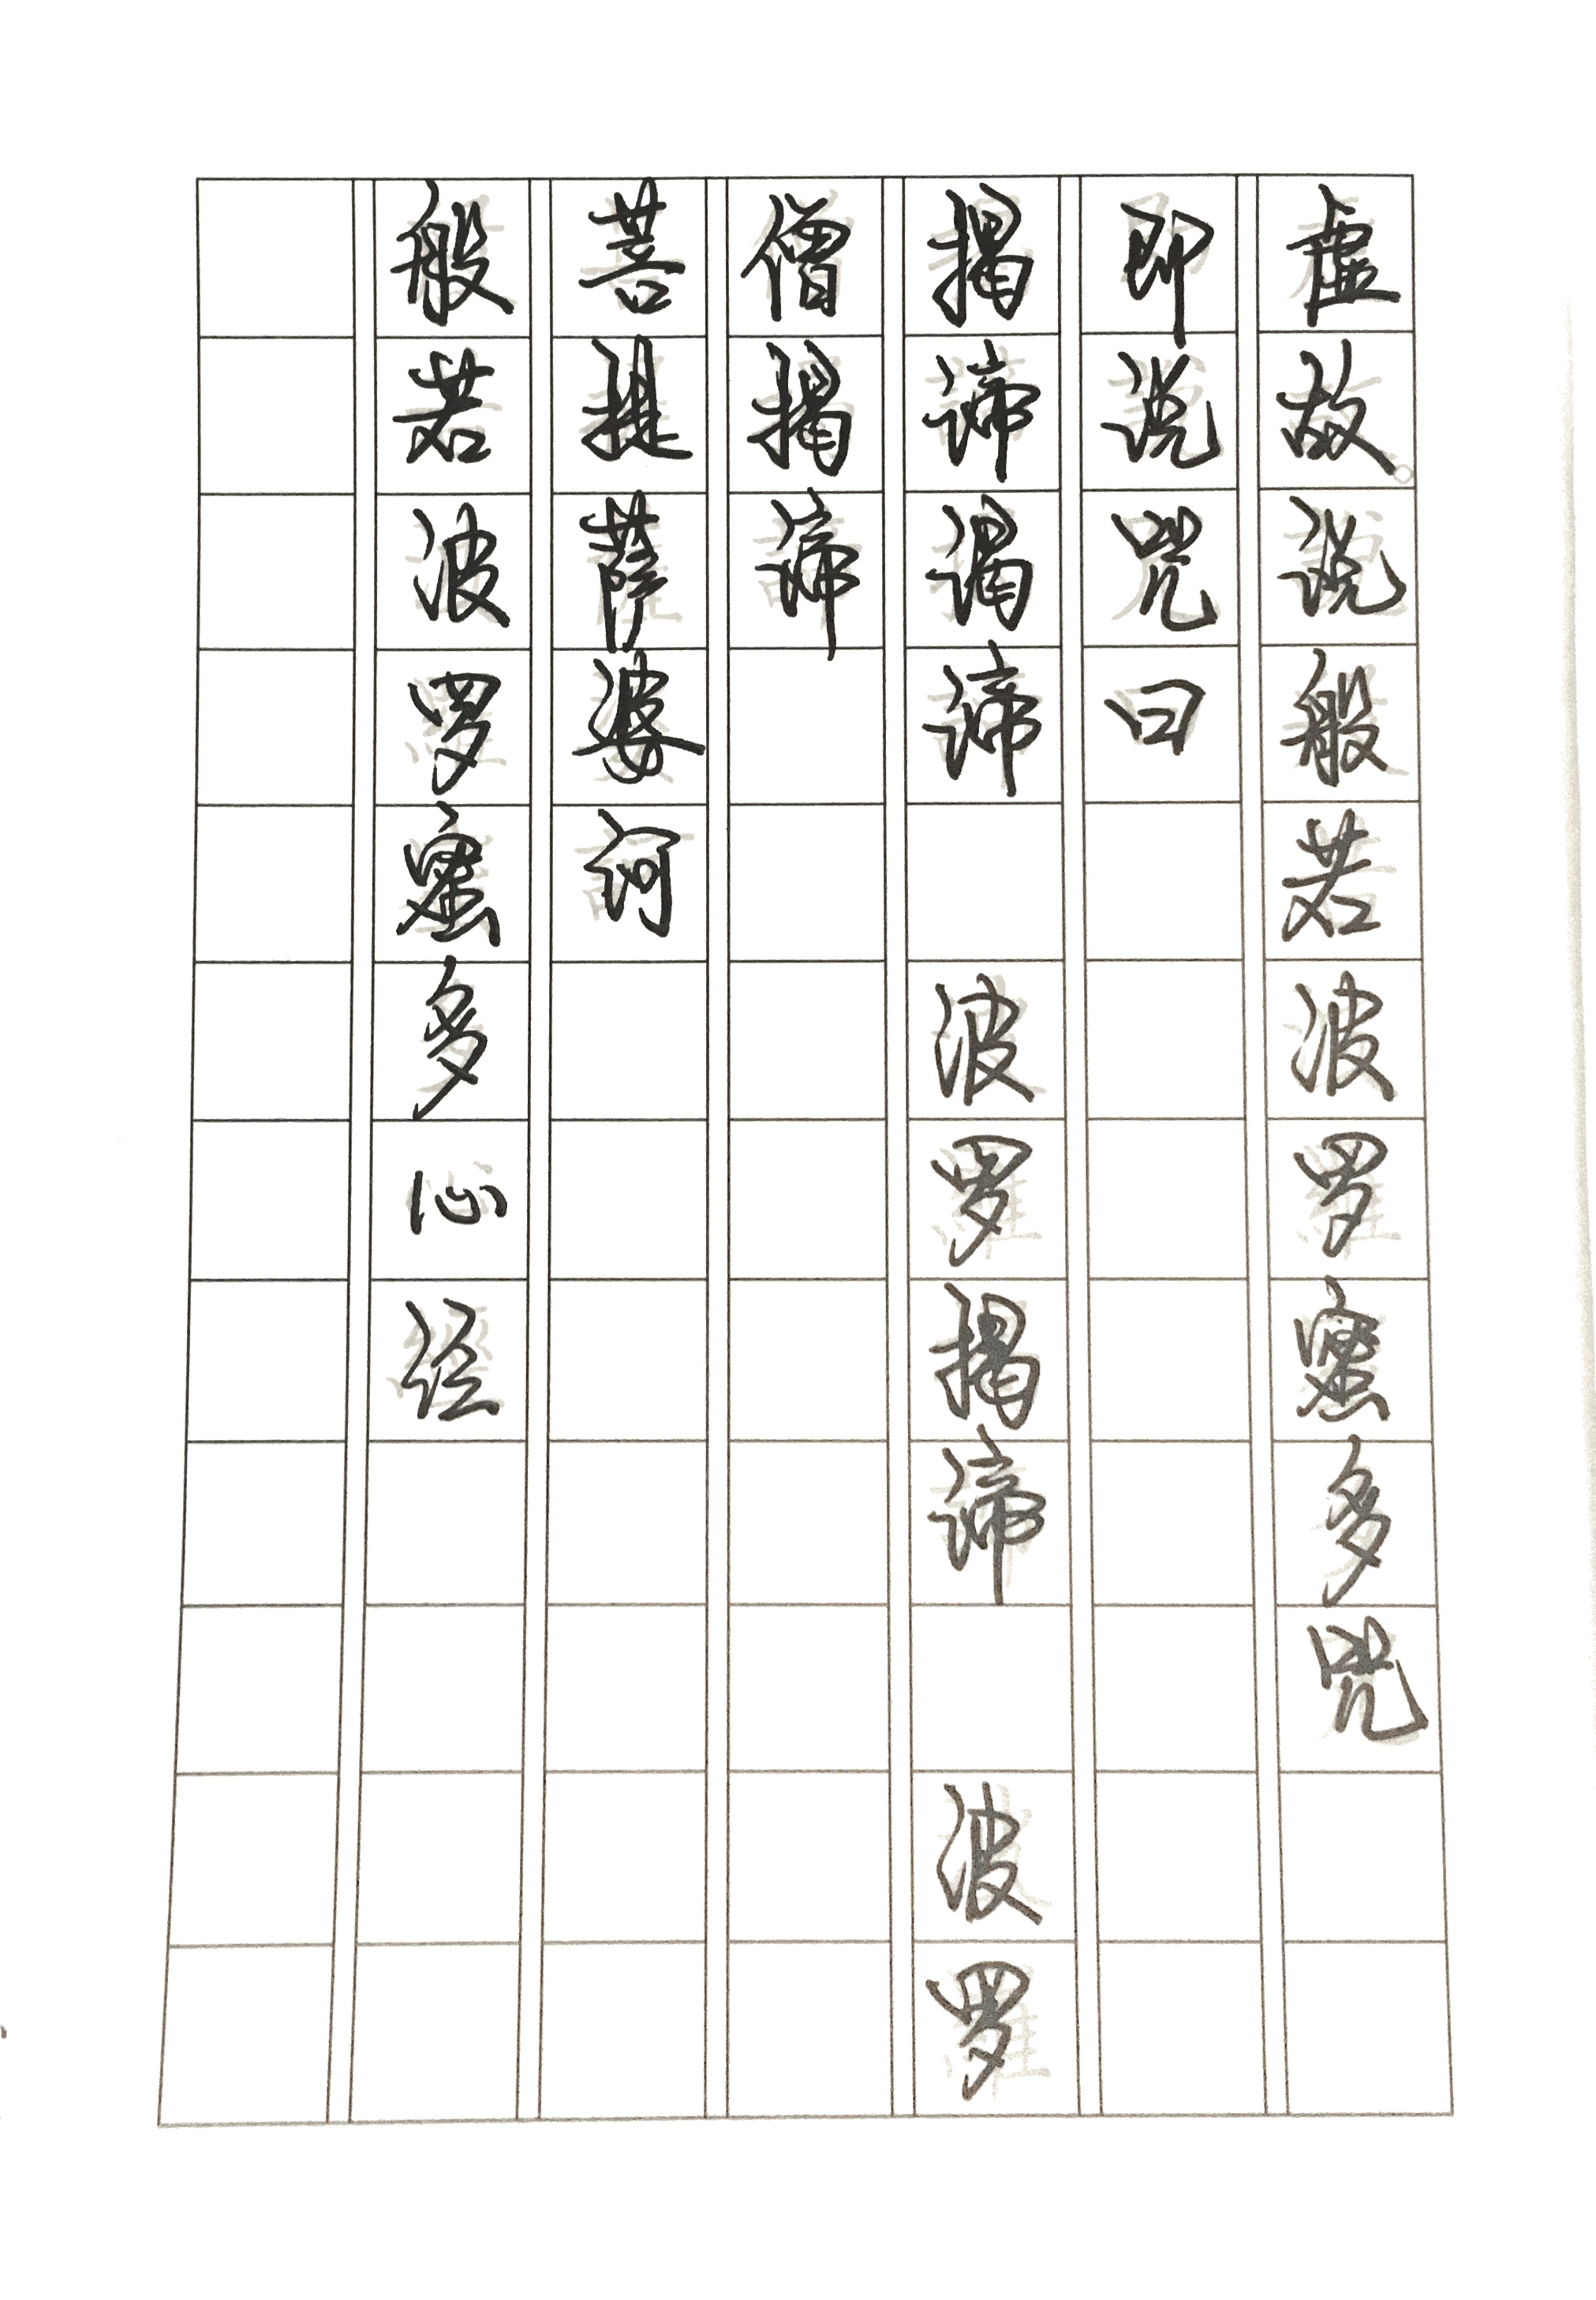 虚故说般若波罗蜜多咒
即说咒曰
揭谛谒谛 波罗揭谛 波罗
僧揭谛
菩提萨婆诃
般若波罗蜜多心经